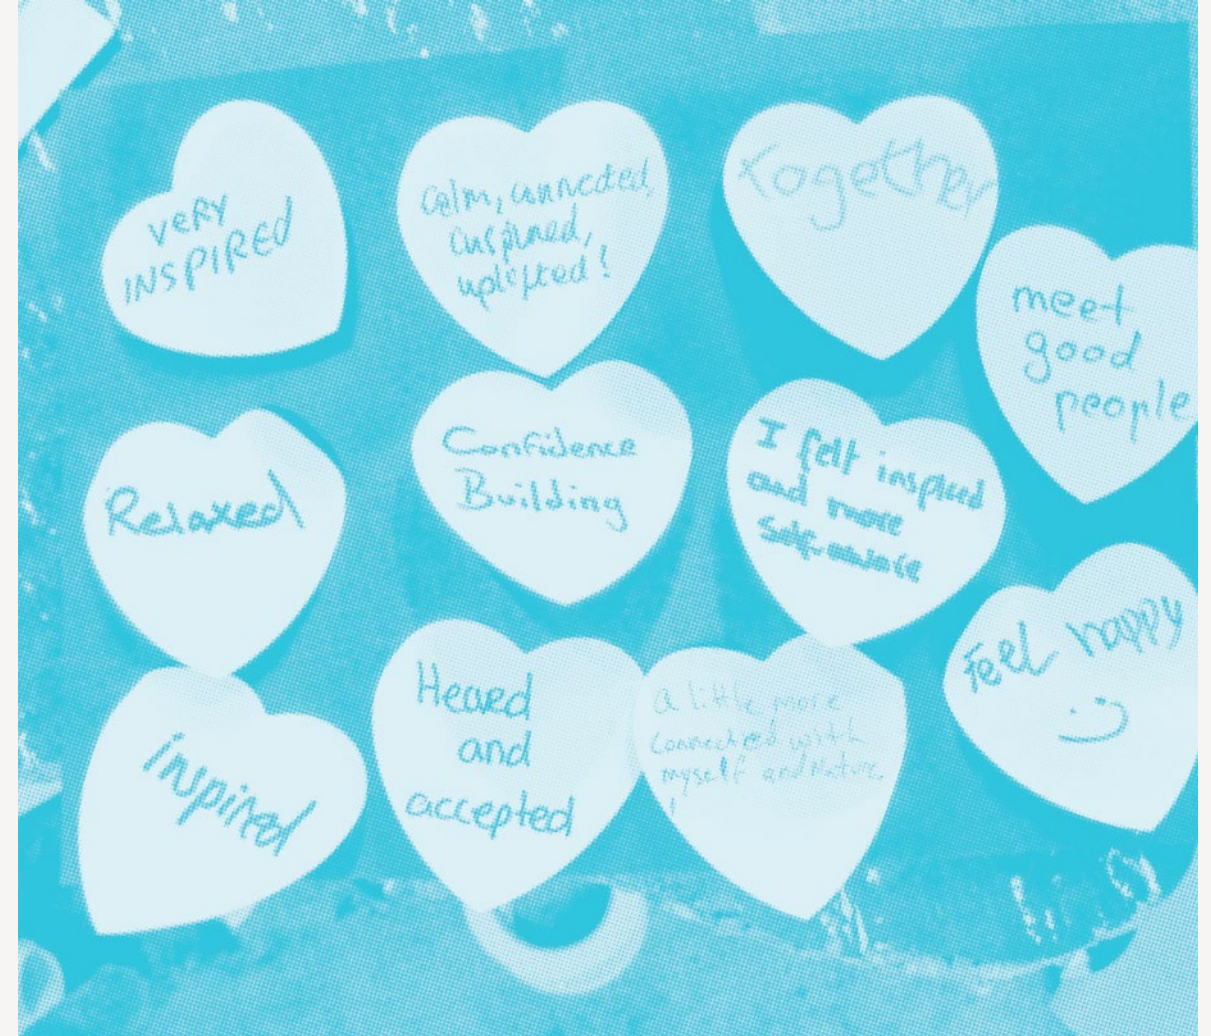 VERY
INSPIRED
Calm, connected,
inspired,
uplifted!
Together
meet
good
people
Relaxed
Confidence
Building
I felt inspired
and more
Self-aware
Feel happy
inspired
Heard
and
accepted
A little more
connected with
myself and Nature.
!